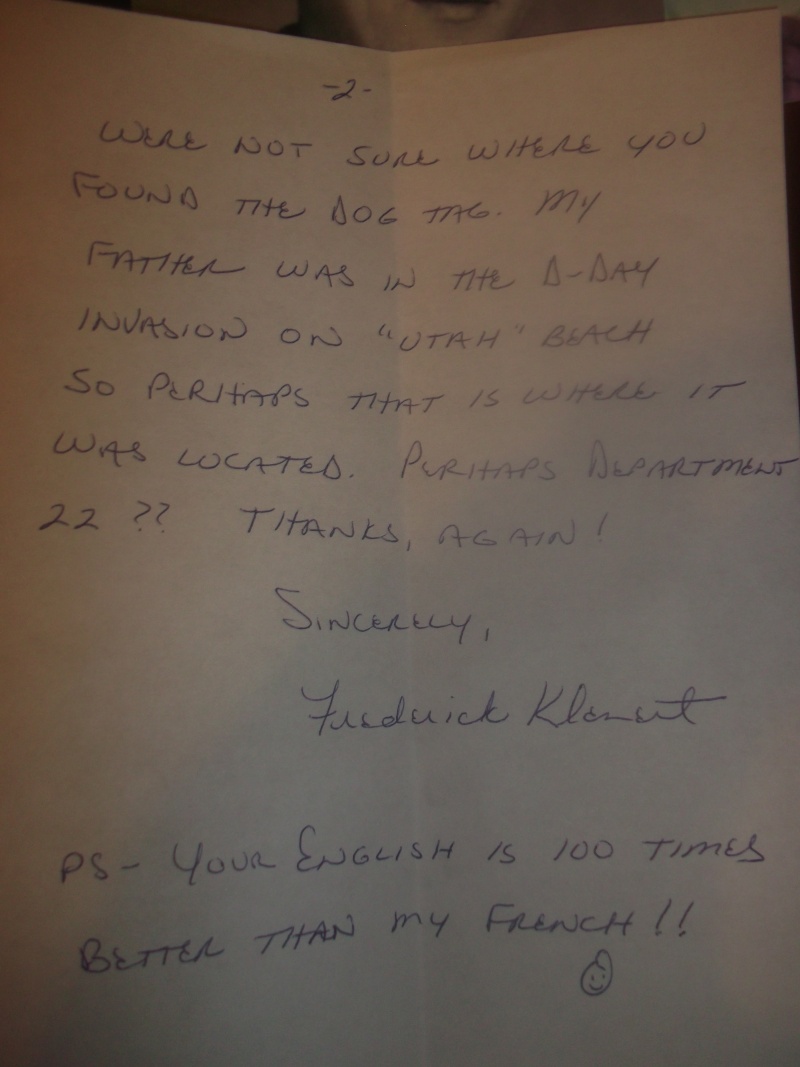 -2-
WERE NOT SURE WHERE YOU
FOUND THE DOG TAG. MY
FATHER WAS IN THE D-DAY
INVASION ON "UTAH" BEACH
SO PERHAPS THAT IS WHERE IT
WAS LOCATED. PERHAPS DEPARTMENT
22 ?? THANKS, AGAIN!
SINCERELY,
Frederick Klement
PS- YOUR ENGLISH IS 100 TIMES
BETTER THAN MY FRENCH!!